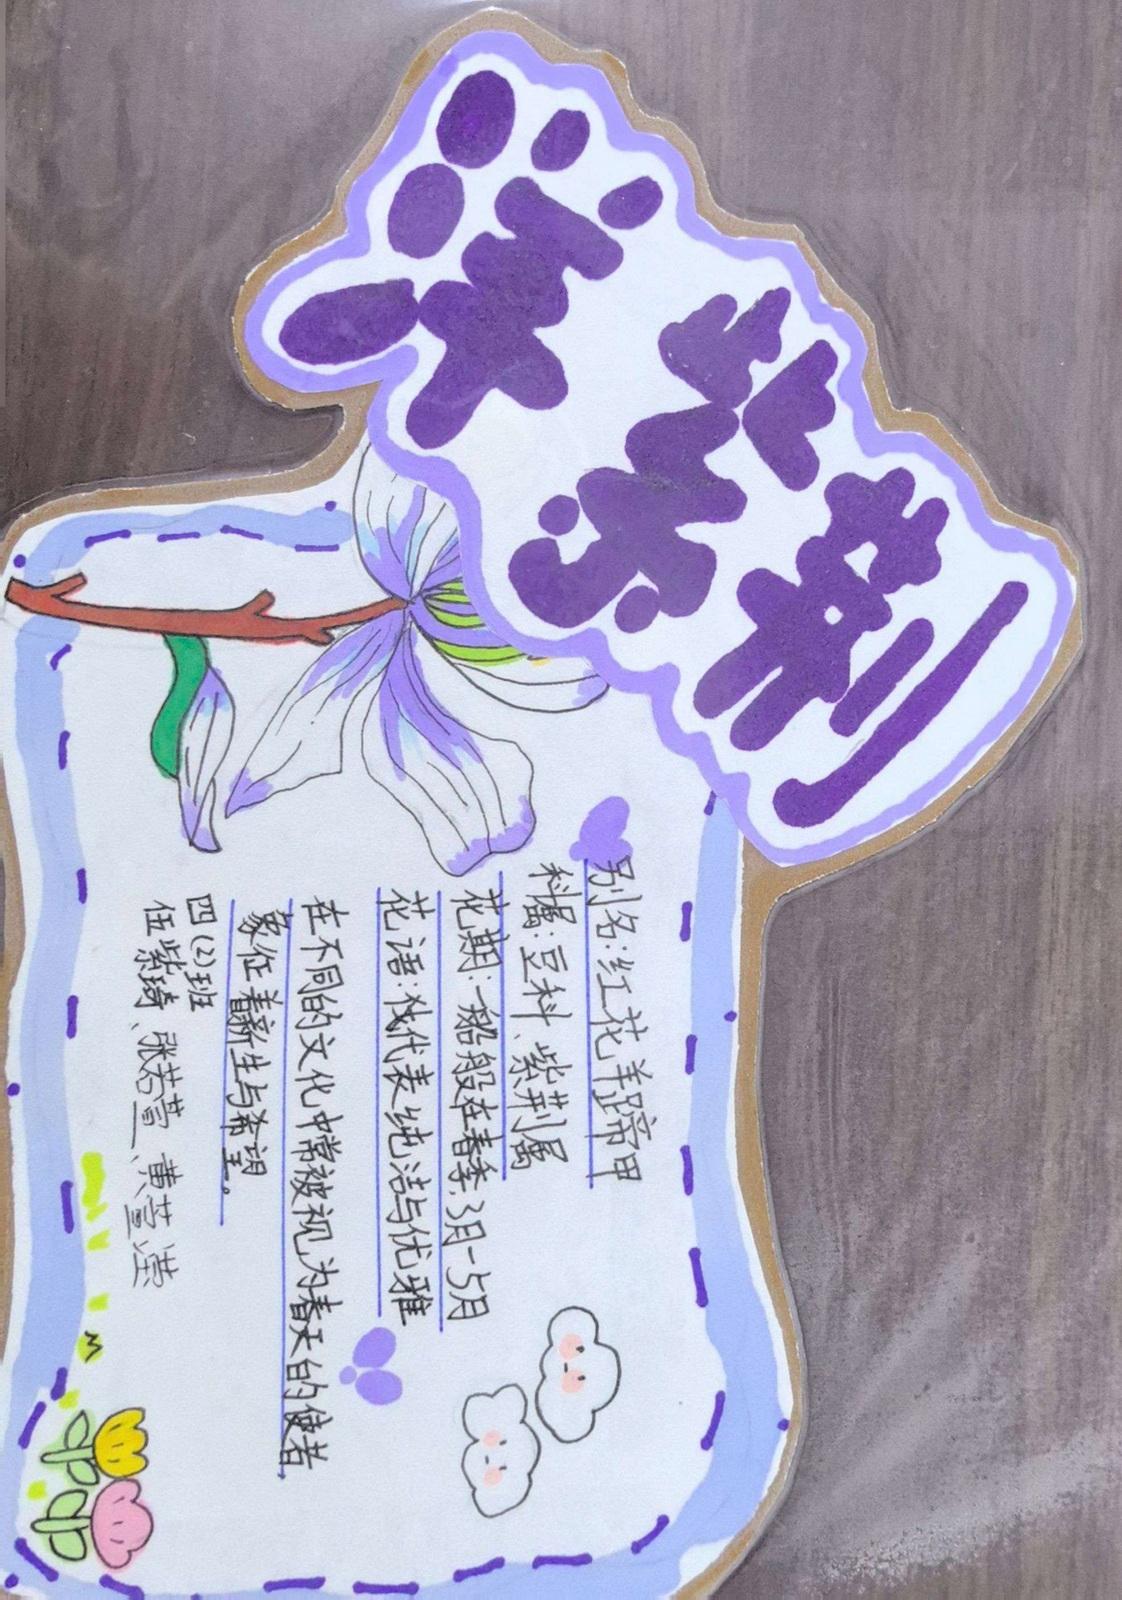 洋紫荆
别名:红花羊蹄甲
科属:豆科、紫荆属
花期:一船般在春季,3月-5月
花语:伐代表纯洁与优雅
在不同的文化中常被视为春天的使者
象征着新生与希望。
四(2)班
伍紫琦、张若萱、黄萱滢